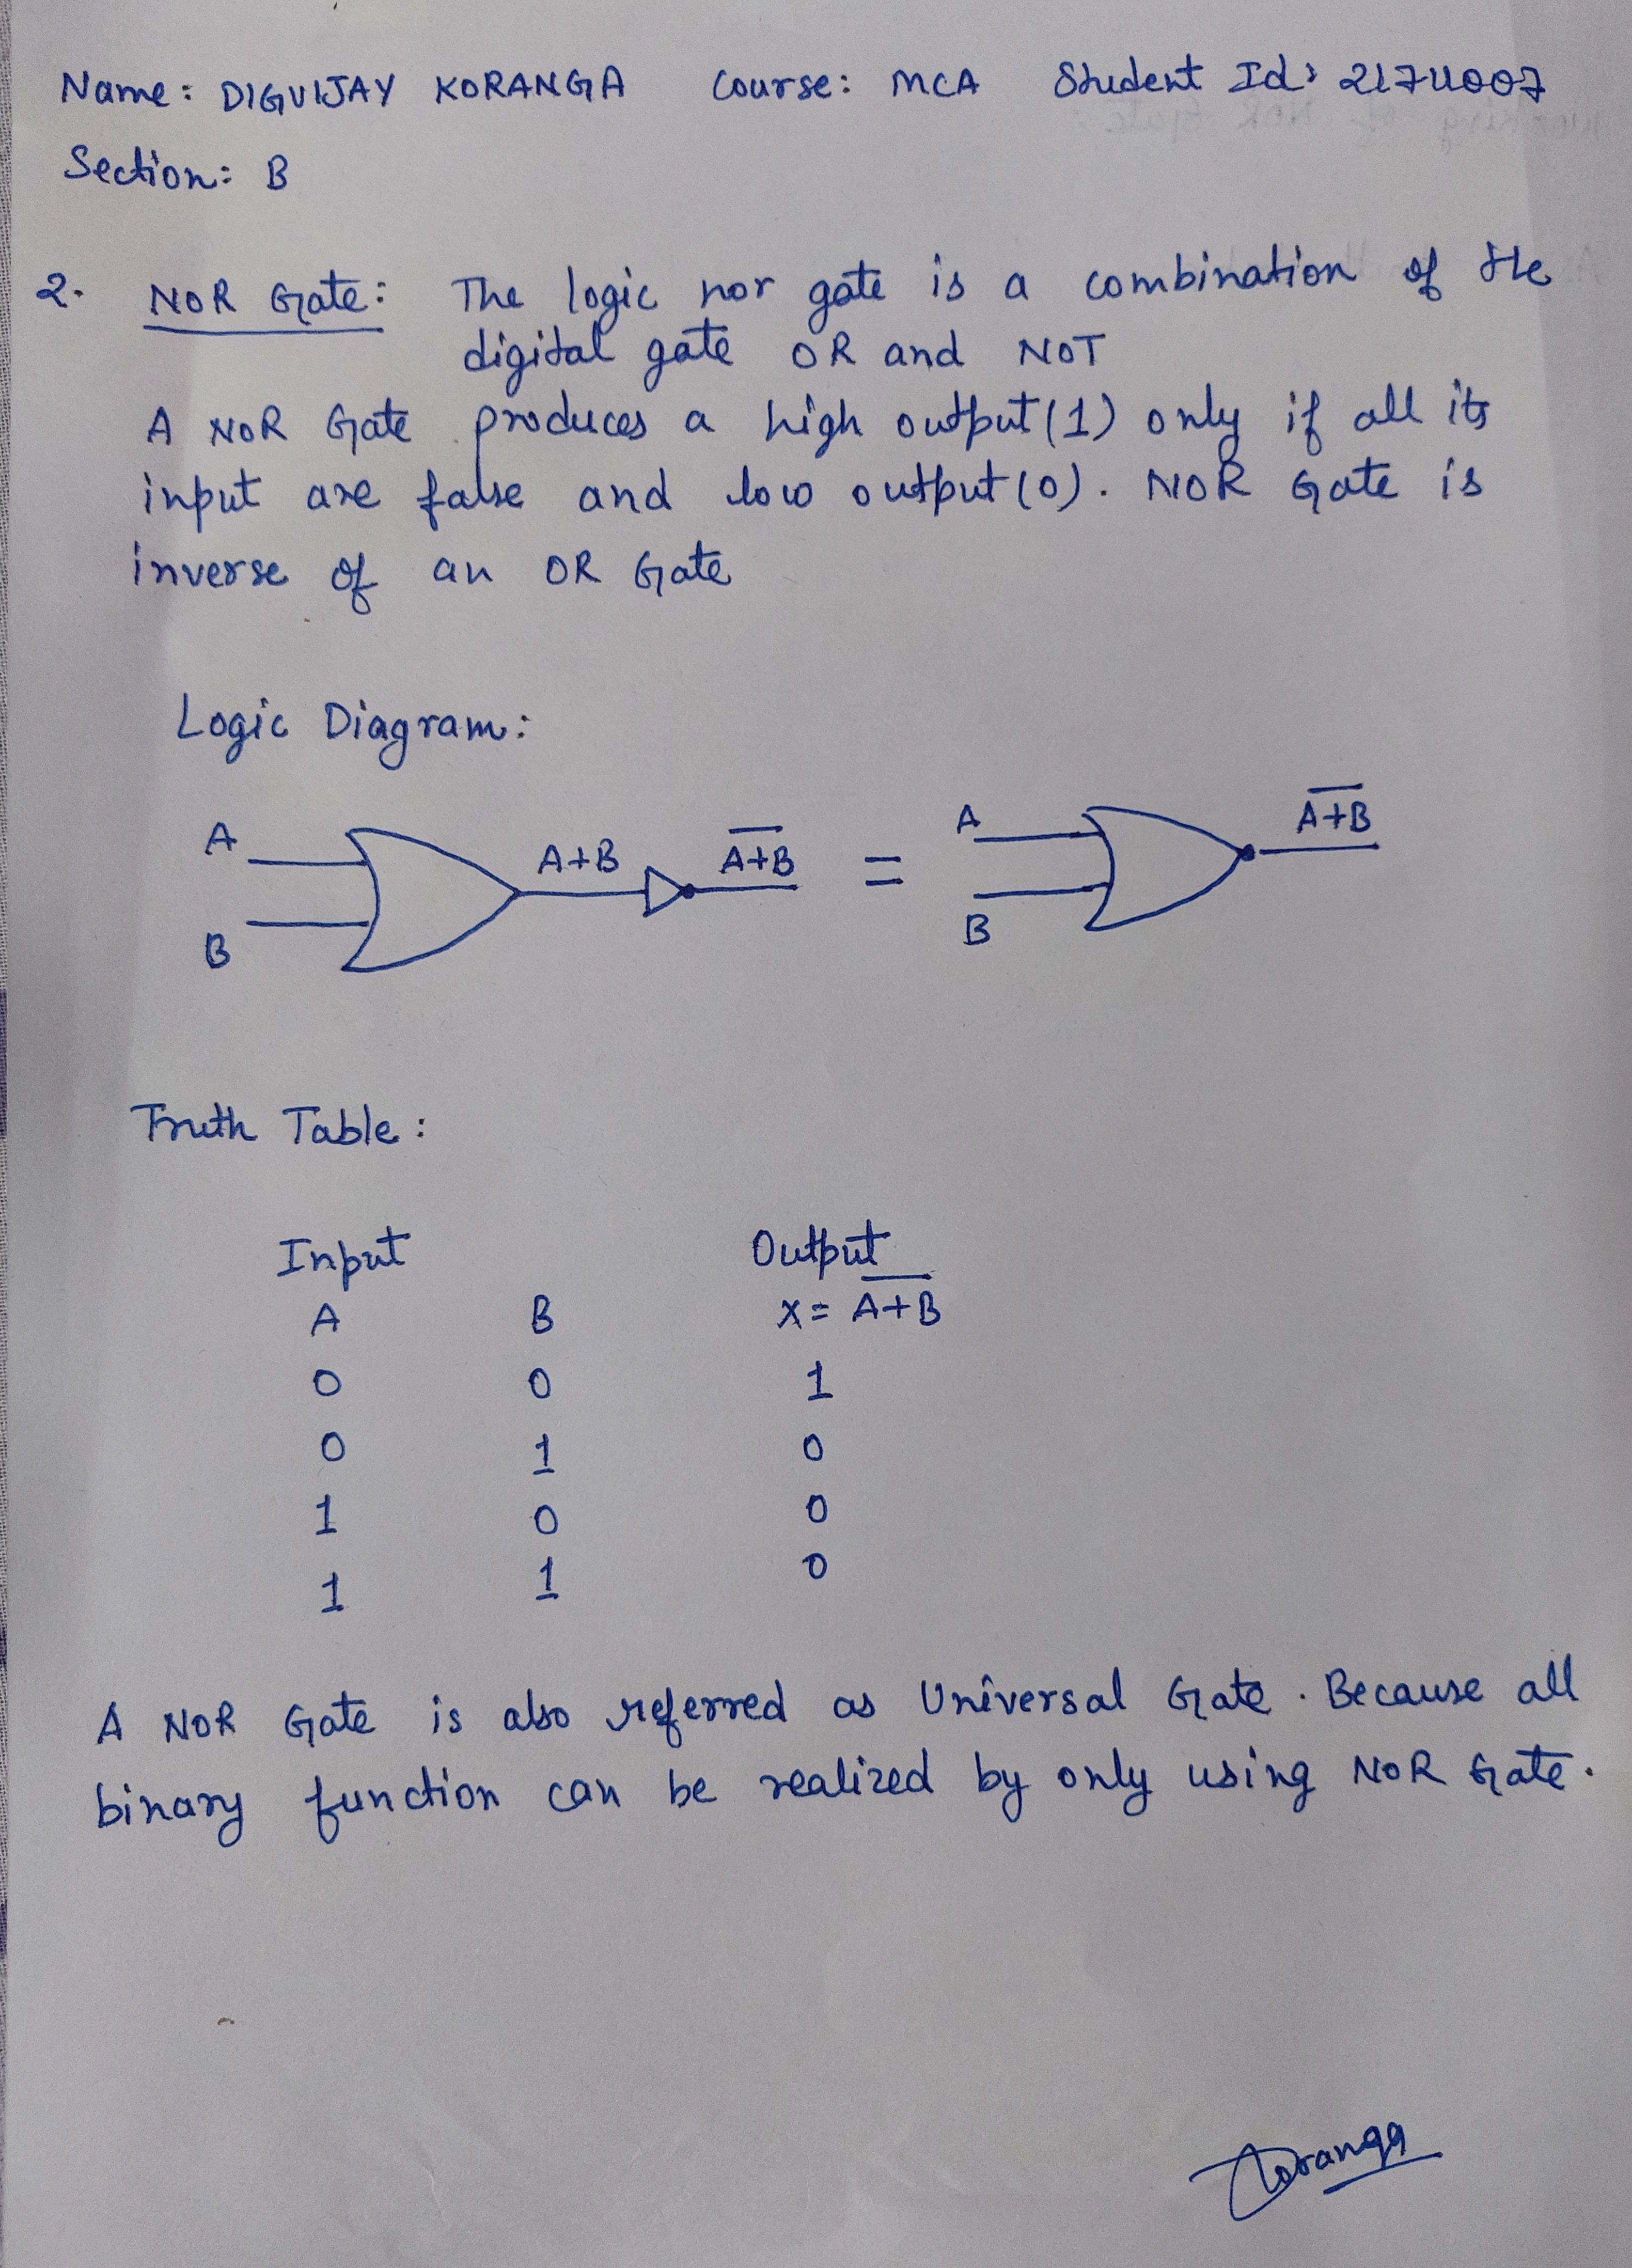 Name: DIGVIJAY KORANGA Course: MCA Student Id: 2174007
Section: B
2. NOR Gate: The logic nor gate is a combination of the
digital gate OR and NOT
A NOR Gate produces a high output(1) only if all its
input are false and low output(0). NOR Gate is
inverse of an OR Gate
Logic Diagram:
A A+B A+B = A A+B
B B
Truth Table:
Input Output
A B X = A+B
0 0 1
0 1 0
1 0 0
1 1 0
A NOR Gate is also referred as Universal Gate. Because all
binary function can be realized by only using NOR Gate.
Koranga